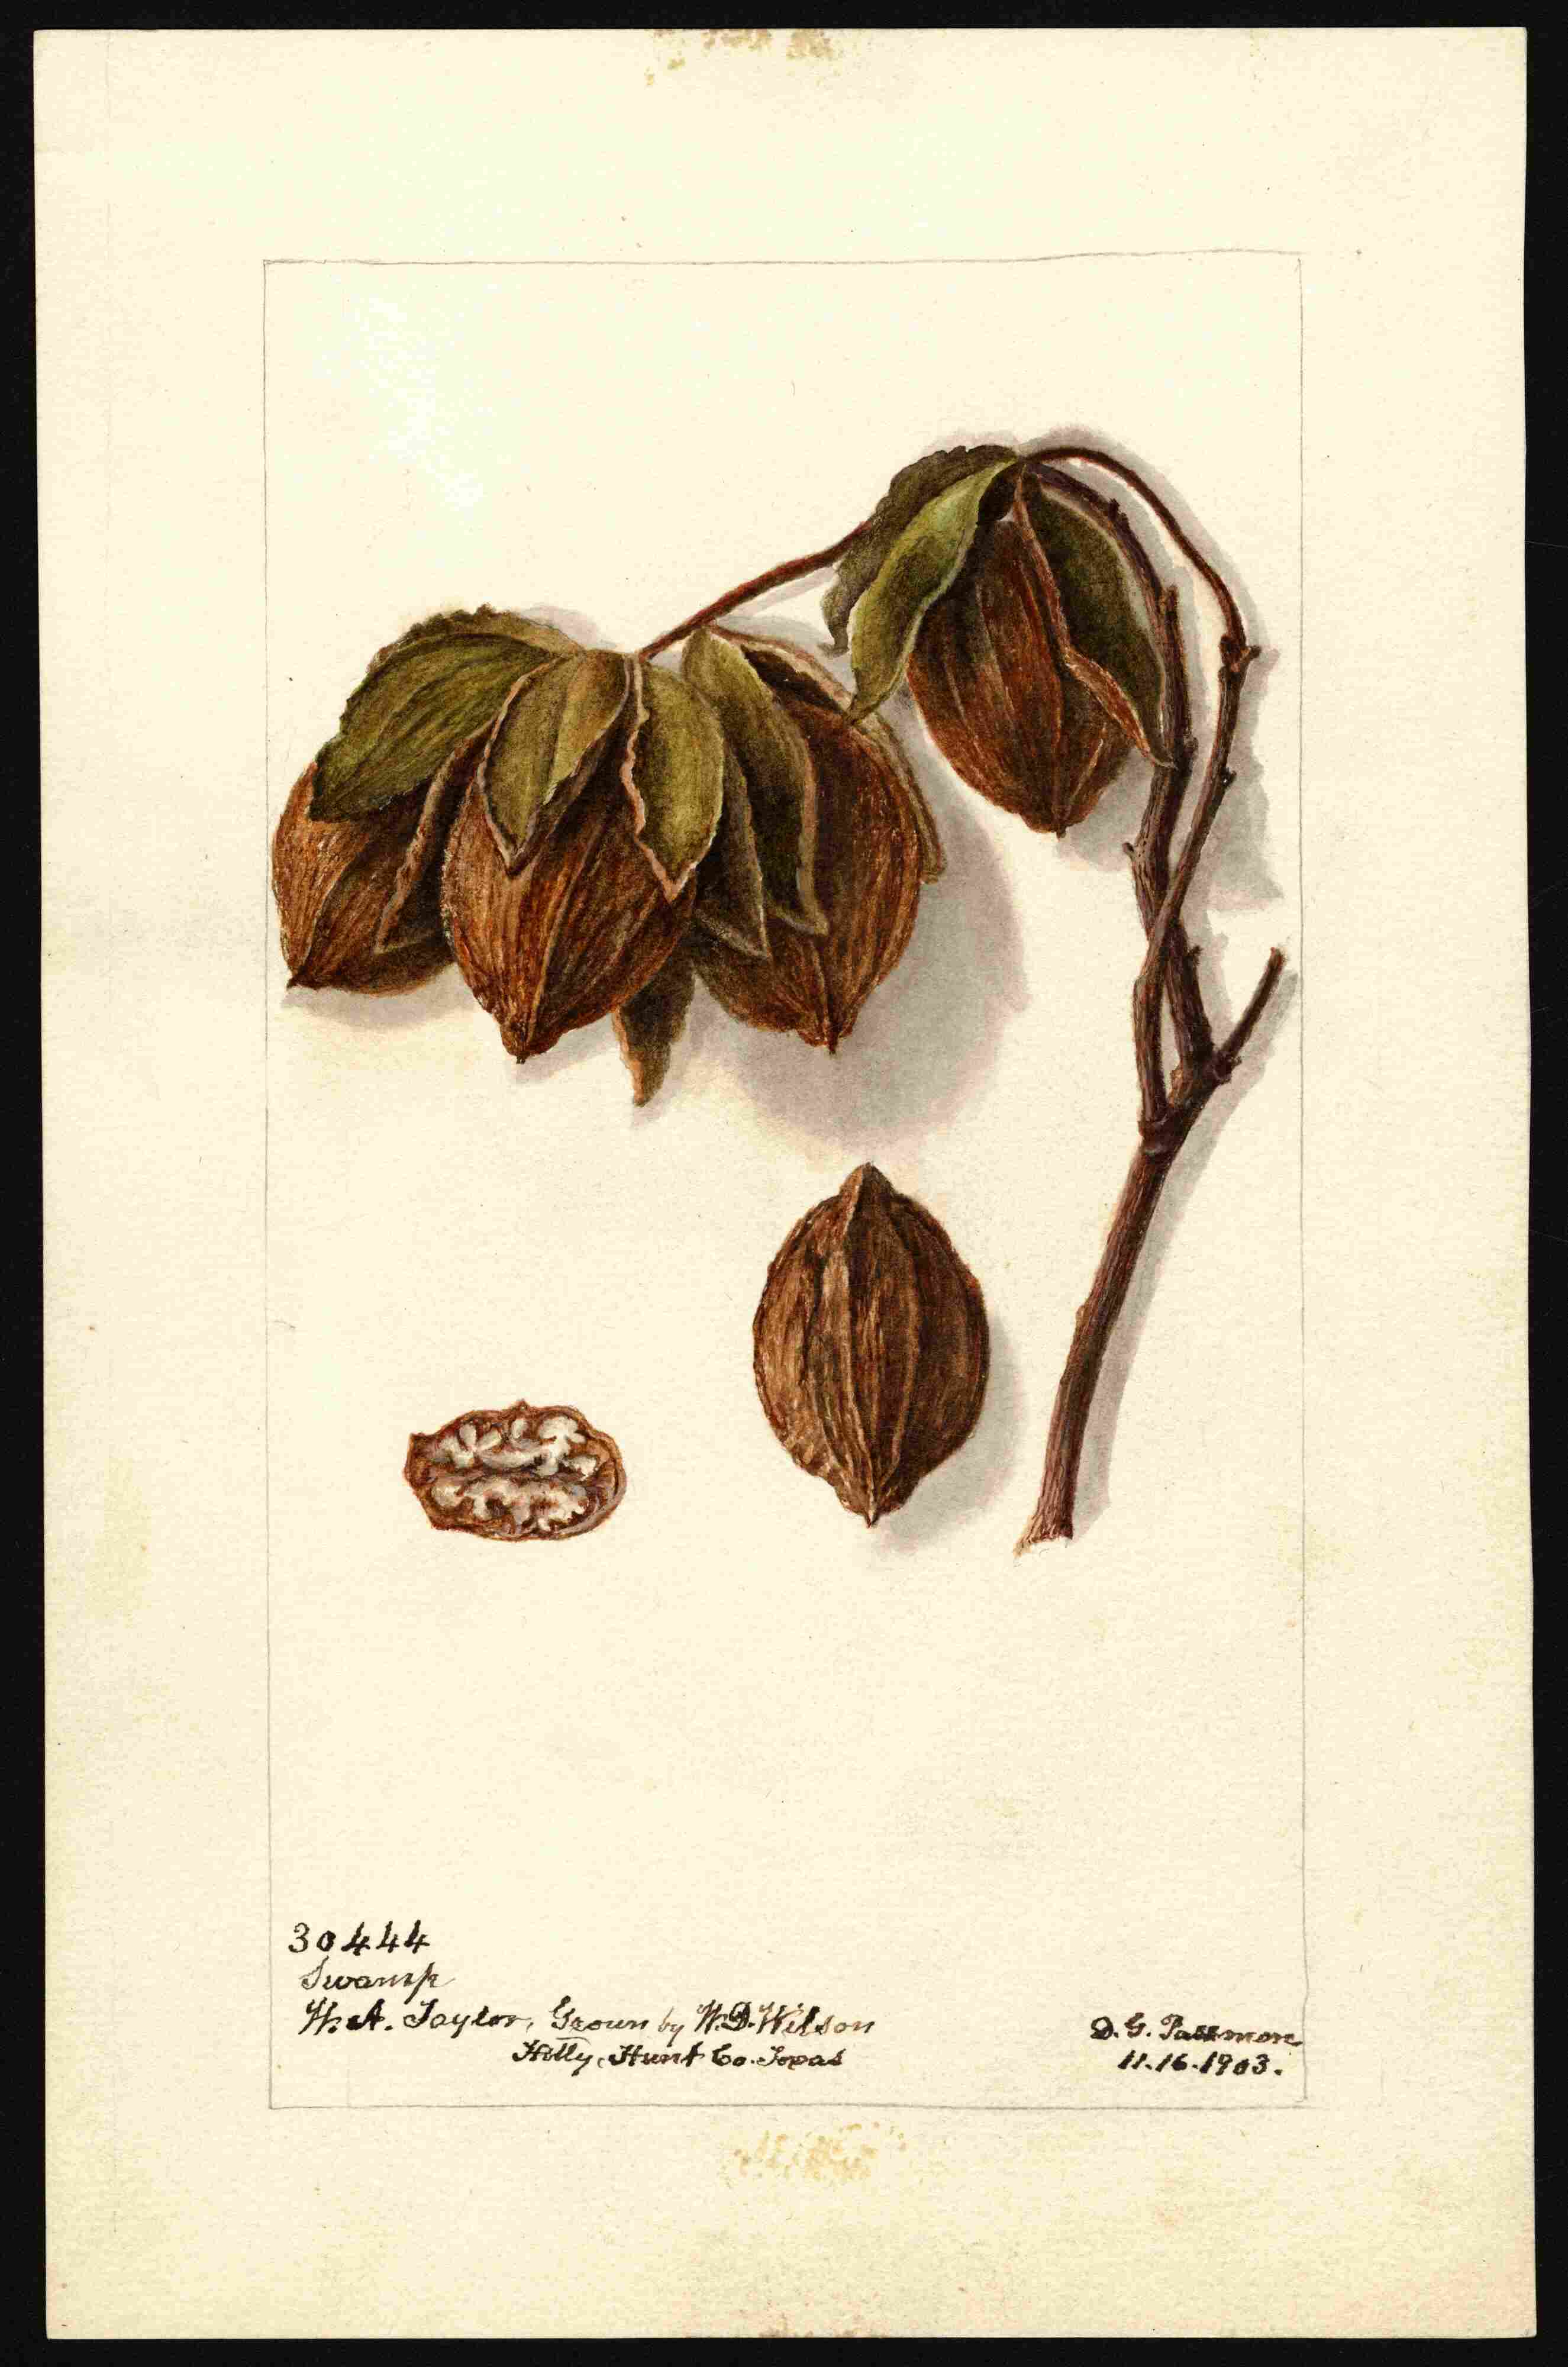 30444
Swamp
W. A. Taylor, Grown by W. D. Wilson
Holly, Hunt Co. Texas
D. G. Passmore
11.16.1903.